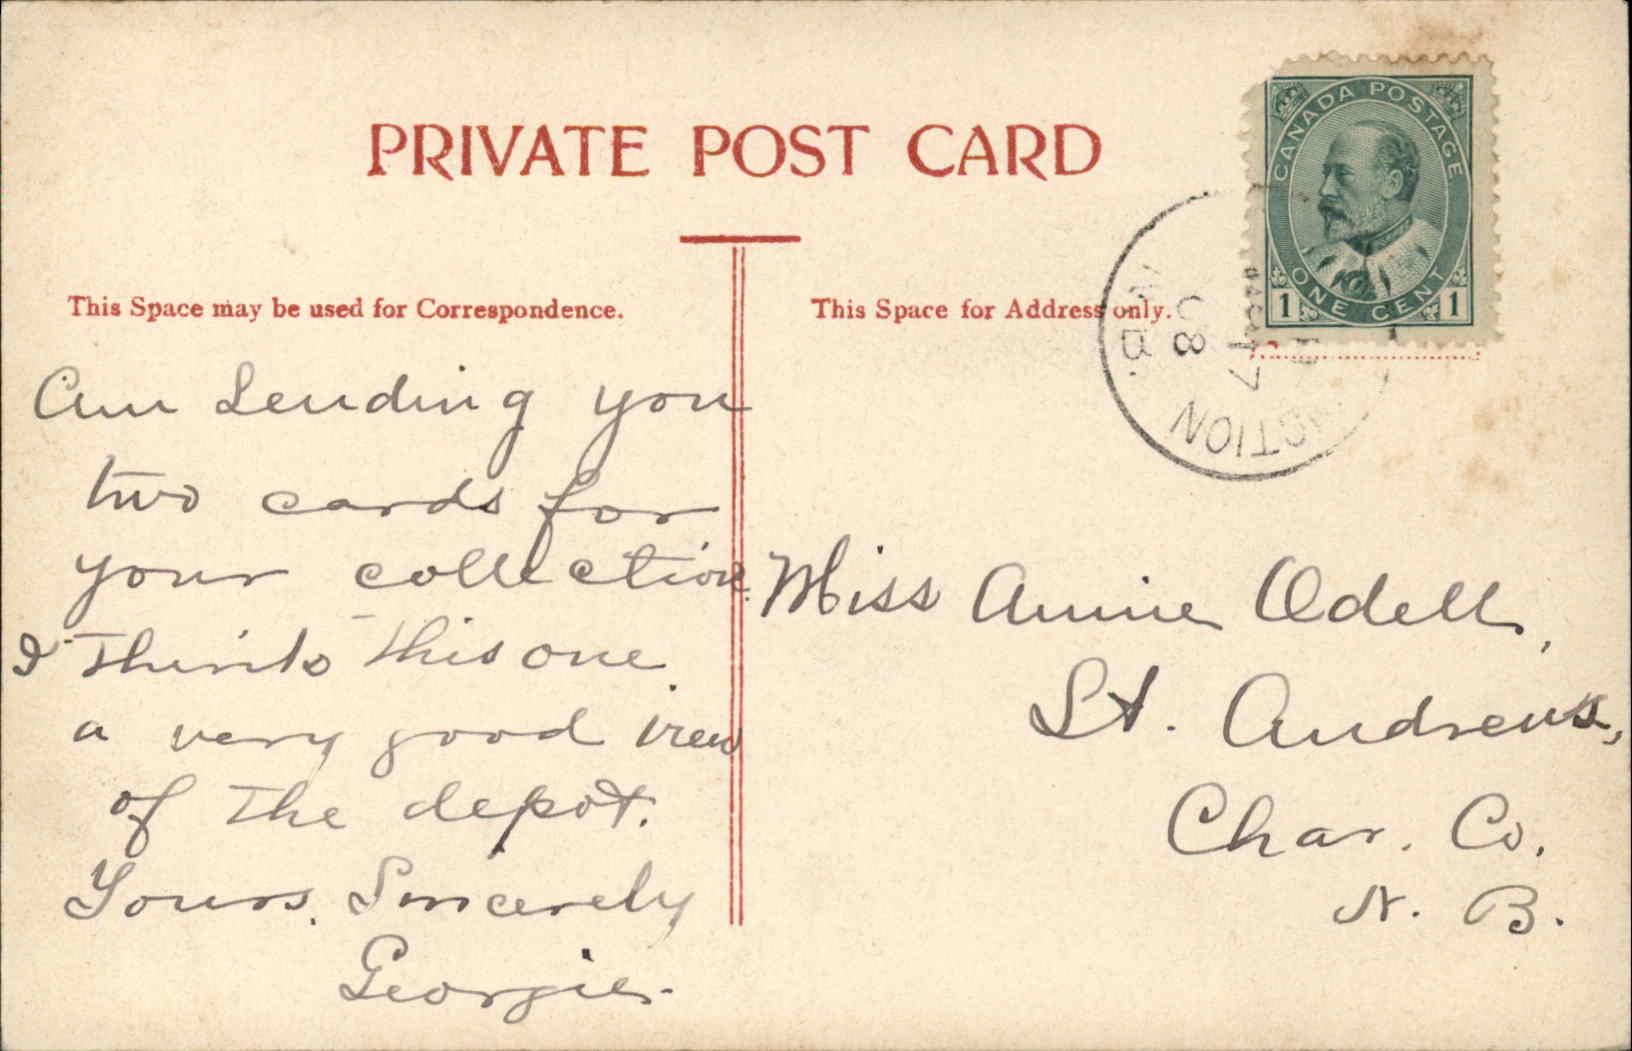 PRIVATE POST CARD
This Space may be used for Correspondence.
This Space for Address only.
CANADA POSTAGE
ONE CENT
1 1
N.B.
08
7
CTION
Am sending you
two cards for
your collection.
I think this one
a very good view
of the depot.
Yours Sincerely
Georgie.
Miss Annie Odell,
St. Andrews,
Char. Co.
N. B.